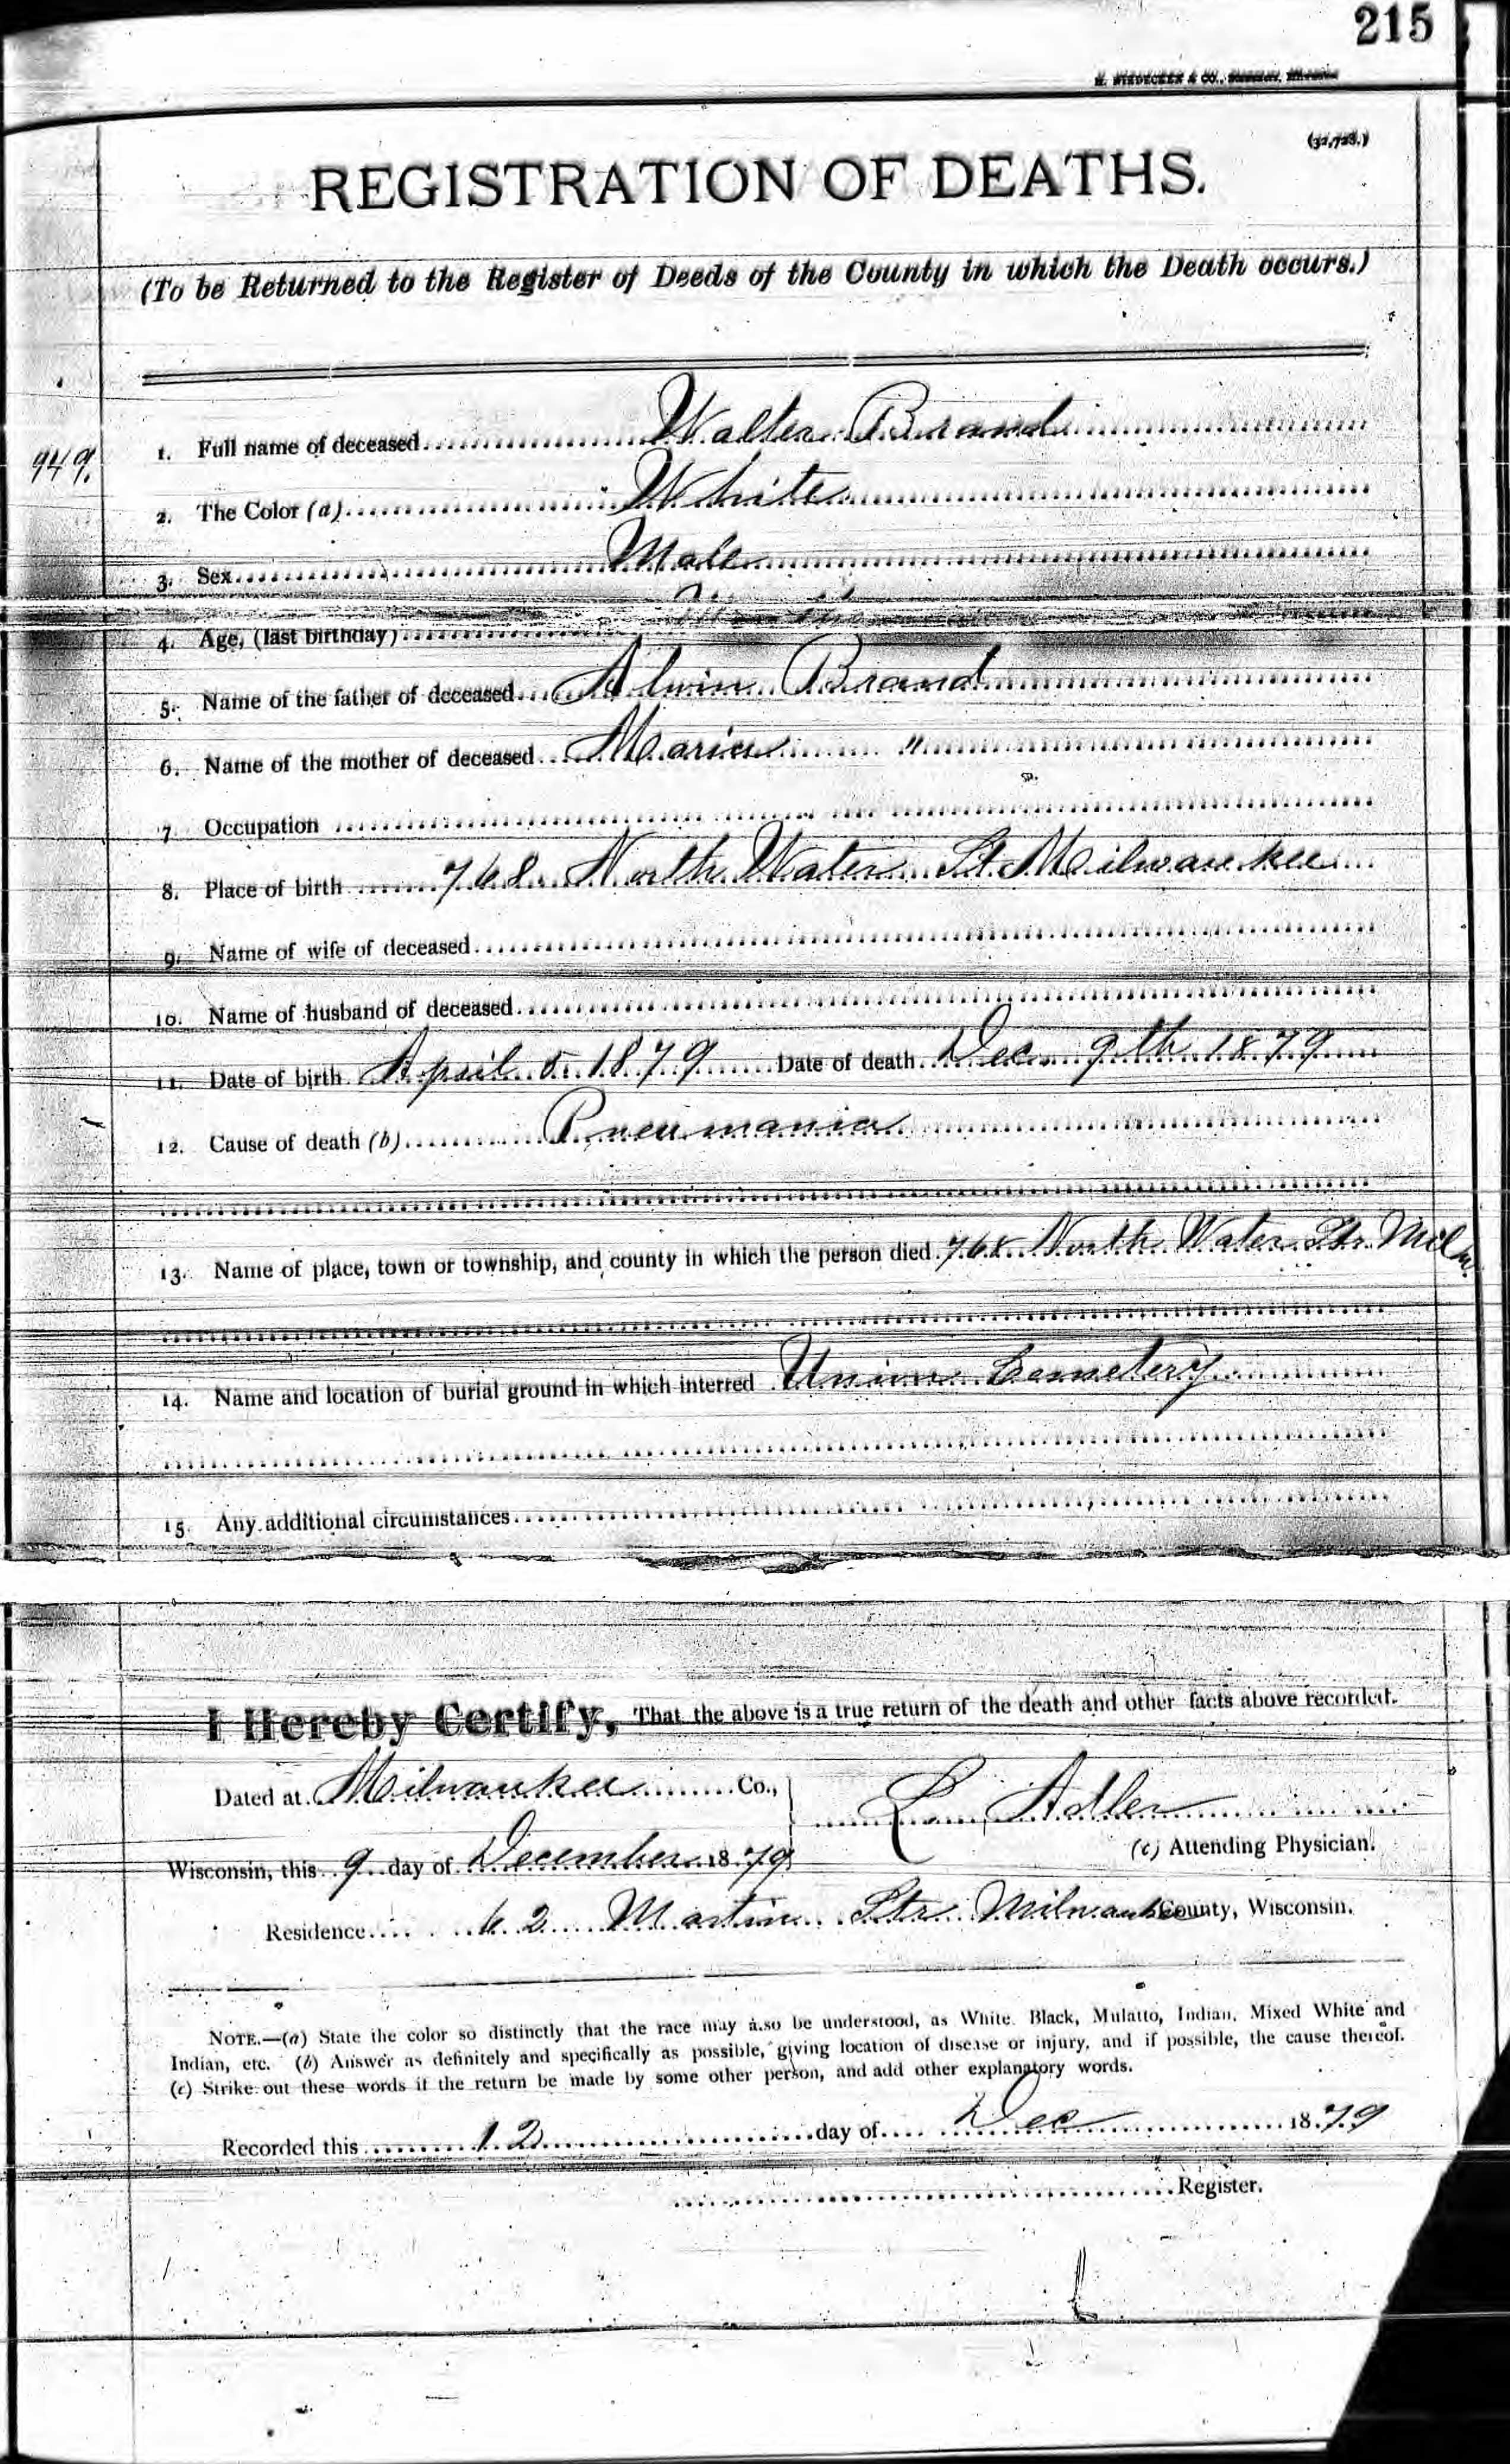 215
(32,728.)
REGISTRATION OF DEATHS.
(To be Returned to the Register of Deeds of the County in which the Death occurs.)
949.
1. Full name of deceased Walter Brand
2. The Color (a) White
3. Sex Male
4. Age, (last birthday)
5. Name of the father of deceased Alwin Brand
6. Name of the mother of deceased Maria "
7. Occupation
8. Place of birth 768 North Water St. Milwaukee
9. Name of wife of deceased
10. Name of husband of deceased
11. Date of birth April 5 1879 Date of death Dec 9th 1879
12. Cause of death (b) Pneumania
13. Name of place, town or township, and county in which the person died 768 North Water Str. Milw.
14. Name and location of burial ground in which interred Union Cemetery
15. Any additional circumstances
I Hereby Certify, That the above is a true return of the death and other facts above recorded.
Dated at Milwaukee Co., Adler
(c) Attending Physician.
Wisconsin, this 9 day of December 1879
Residence 62 Martin Str Milwaukee County, Wisconsin.
NOTE.—(a) State the color so distinctly that the race may also be understood, as White. Black, Mulatto, Indian, Mixed White and
Indian, etc. (b) Answer as definitely and specifically as possible, giving location of disease or injury, and if possible, the cause thereof.
(c) Strike out these words if the return be made by some other person, and add other explanatory words.
Recorded this 12 day of Dec 1879
Register.